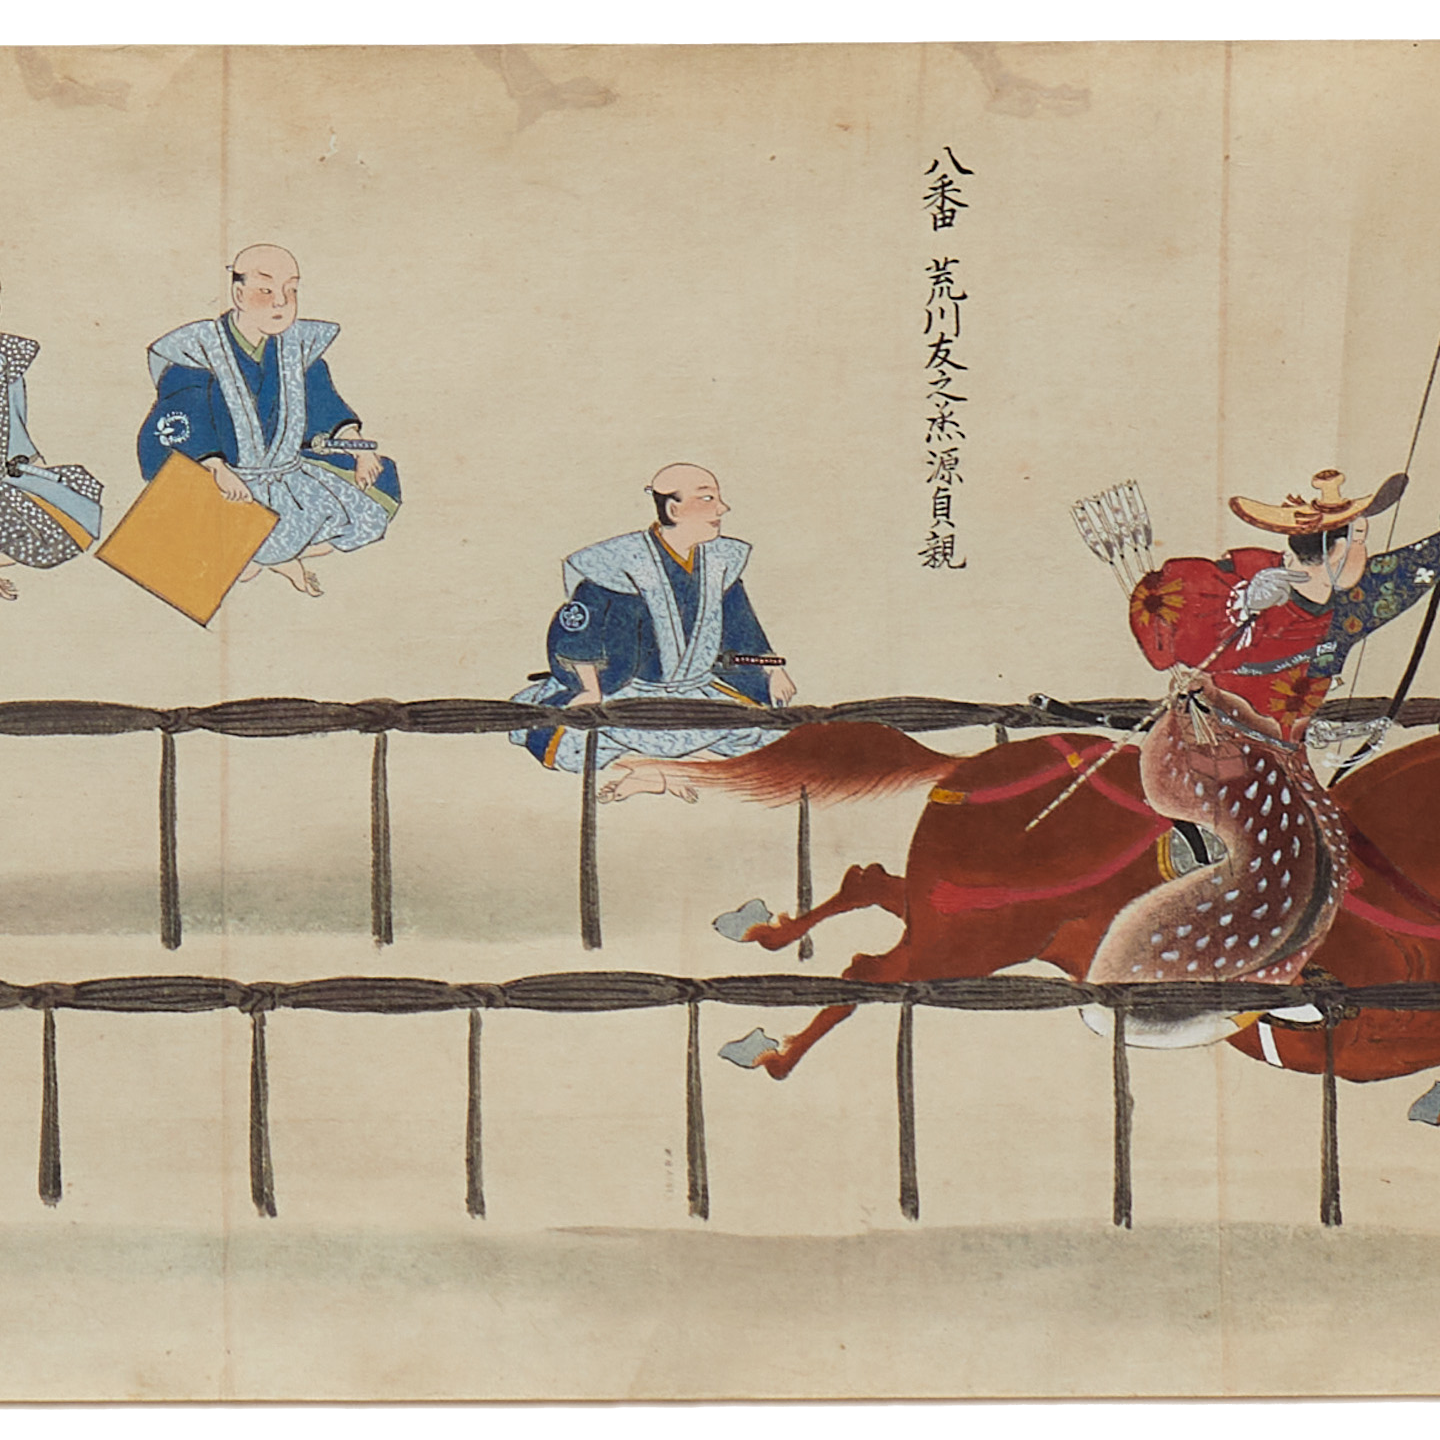 八番 荒川友之烝源貞親